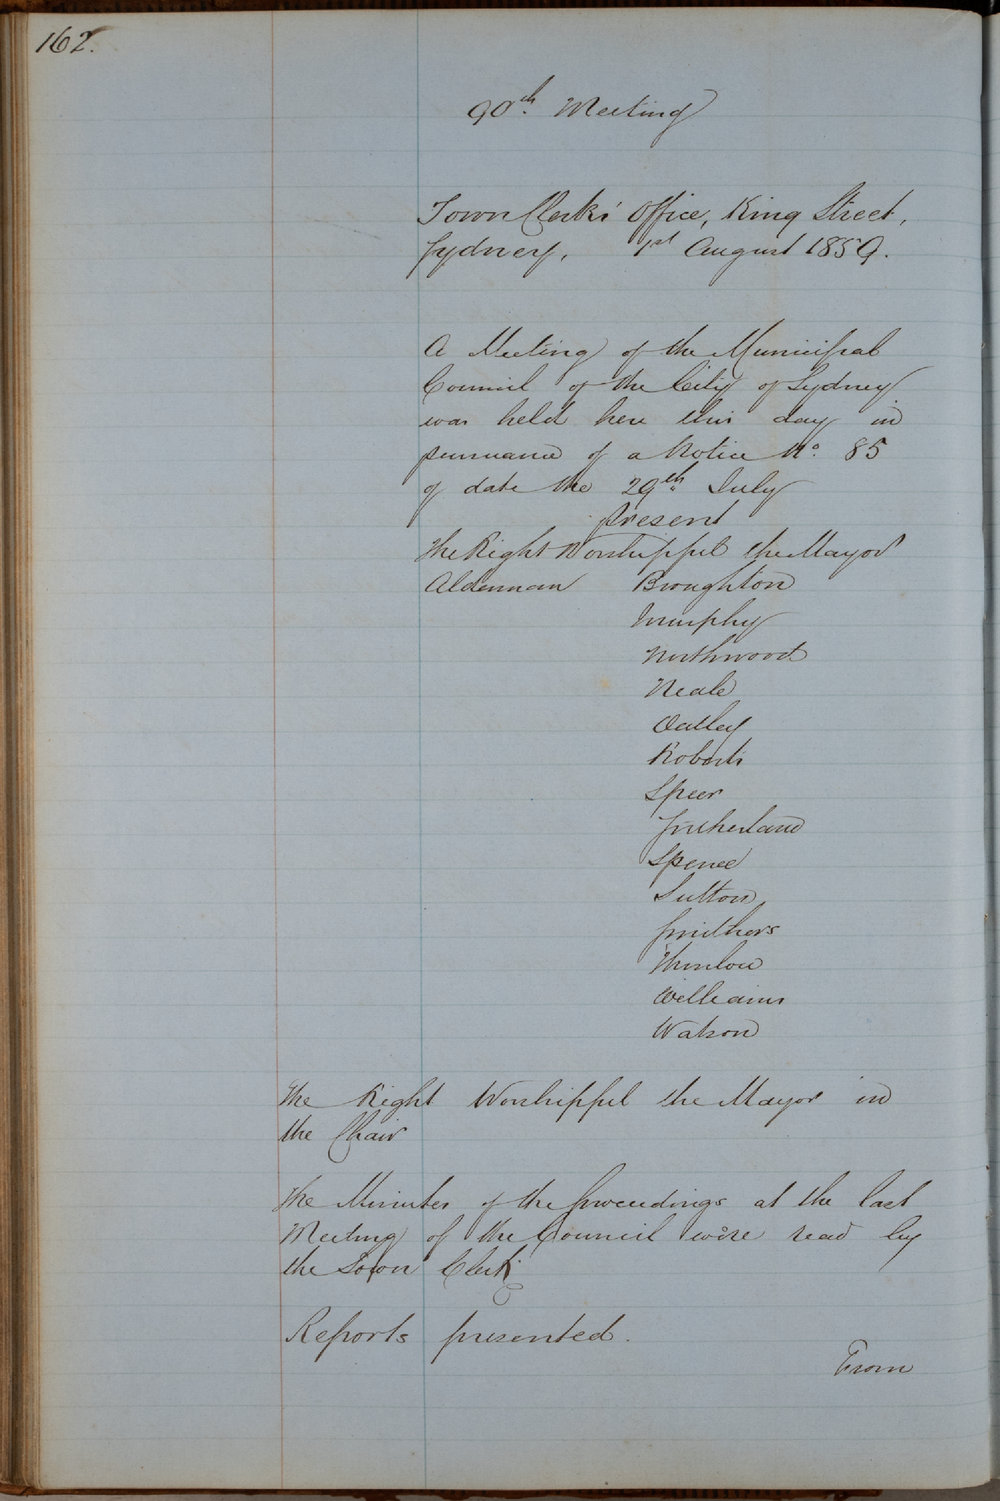 162.
90th. Meeting
Town Clerks' Office, King Street,
Sydney, 1st August 1859.
A Meeting of the Municipal
Council of the City of Sydney
was held here this day in
pursuance of a Notice No. 85
of date the 29th. July
Present
The Right Worshipful the Mayor
Alderman Broughton
Murphy
Northwood
Neale
Oatley
Roberts
Speer
Sutherland
Spence
Sutton
Smithers
Thurlow
Williams
Watson
The Right Worshipful the Mayor in
the Chair
The Minutes of the proceedings at the last
Meeting of the Council were read by
the Town Clerk
Reports presented.
From